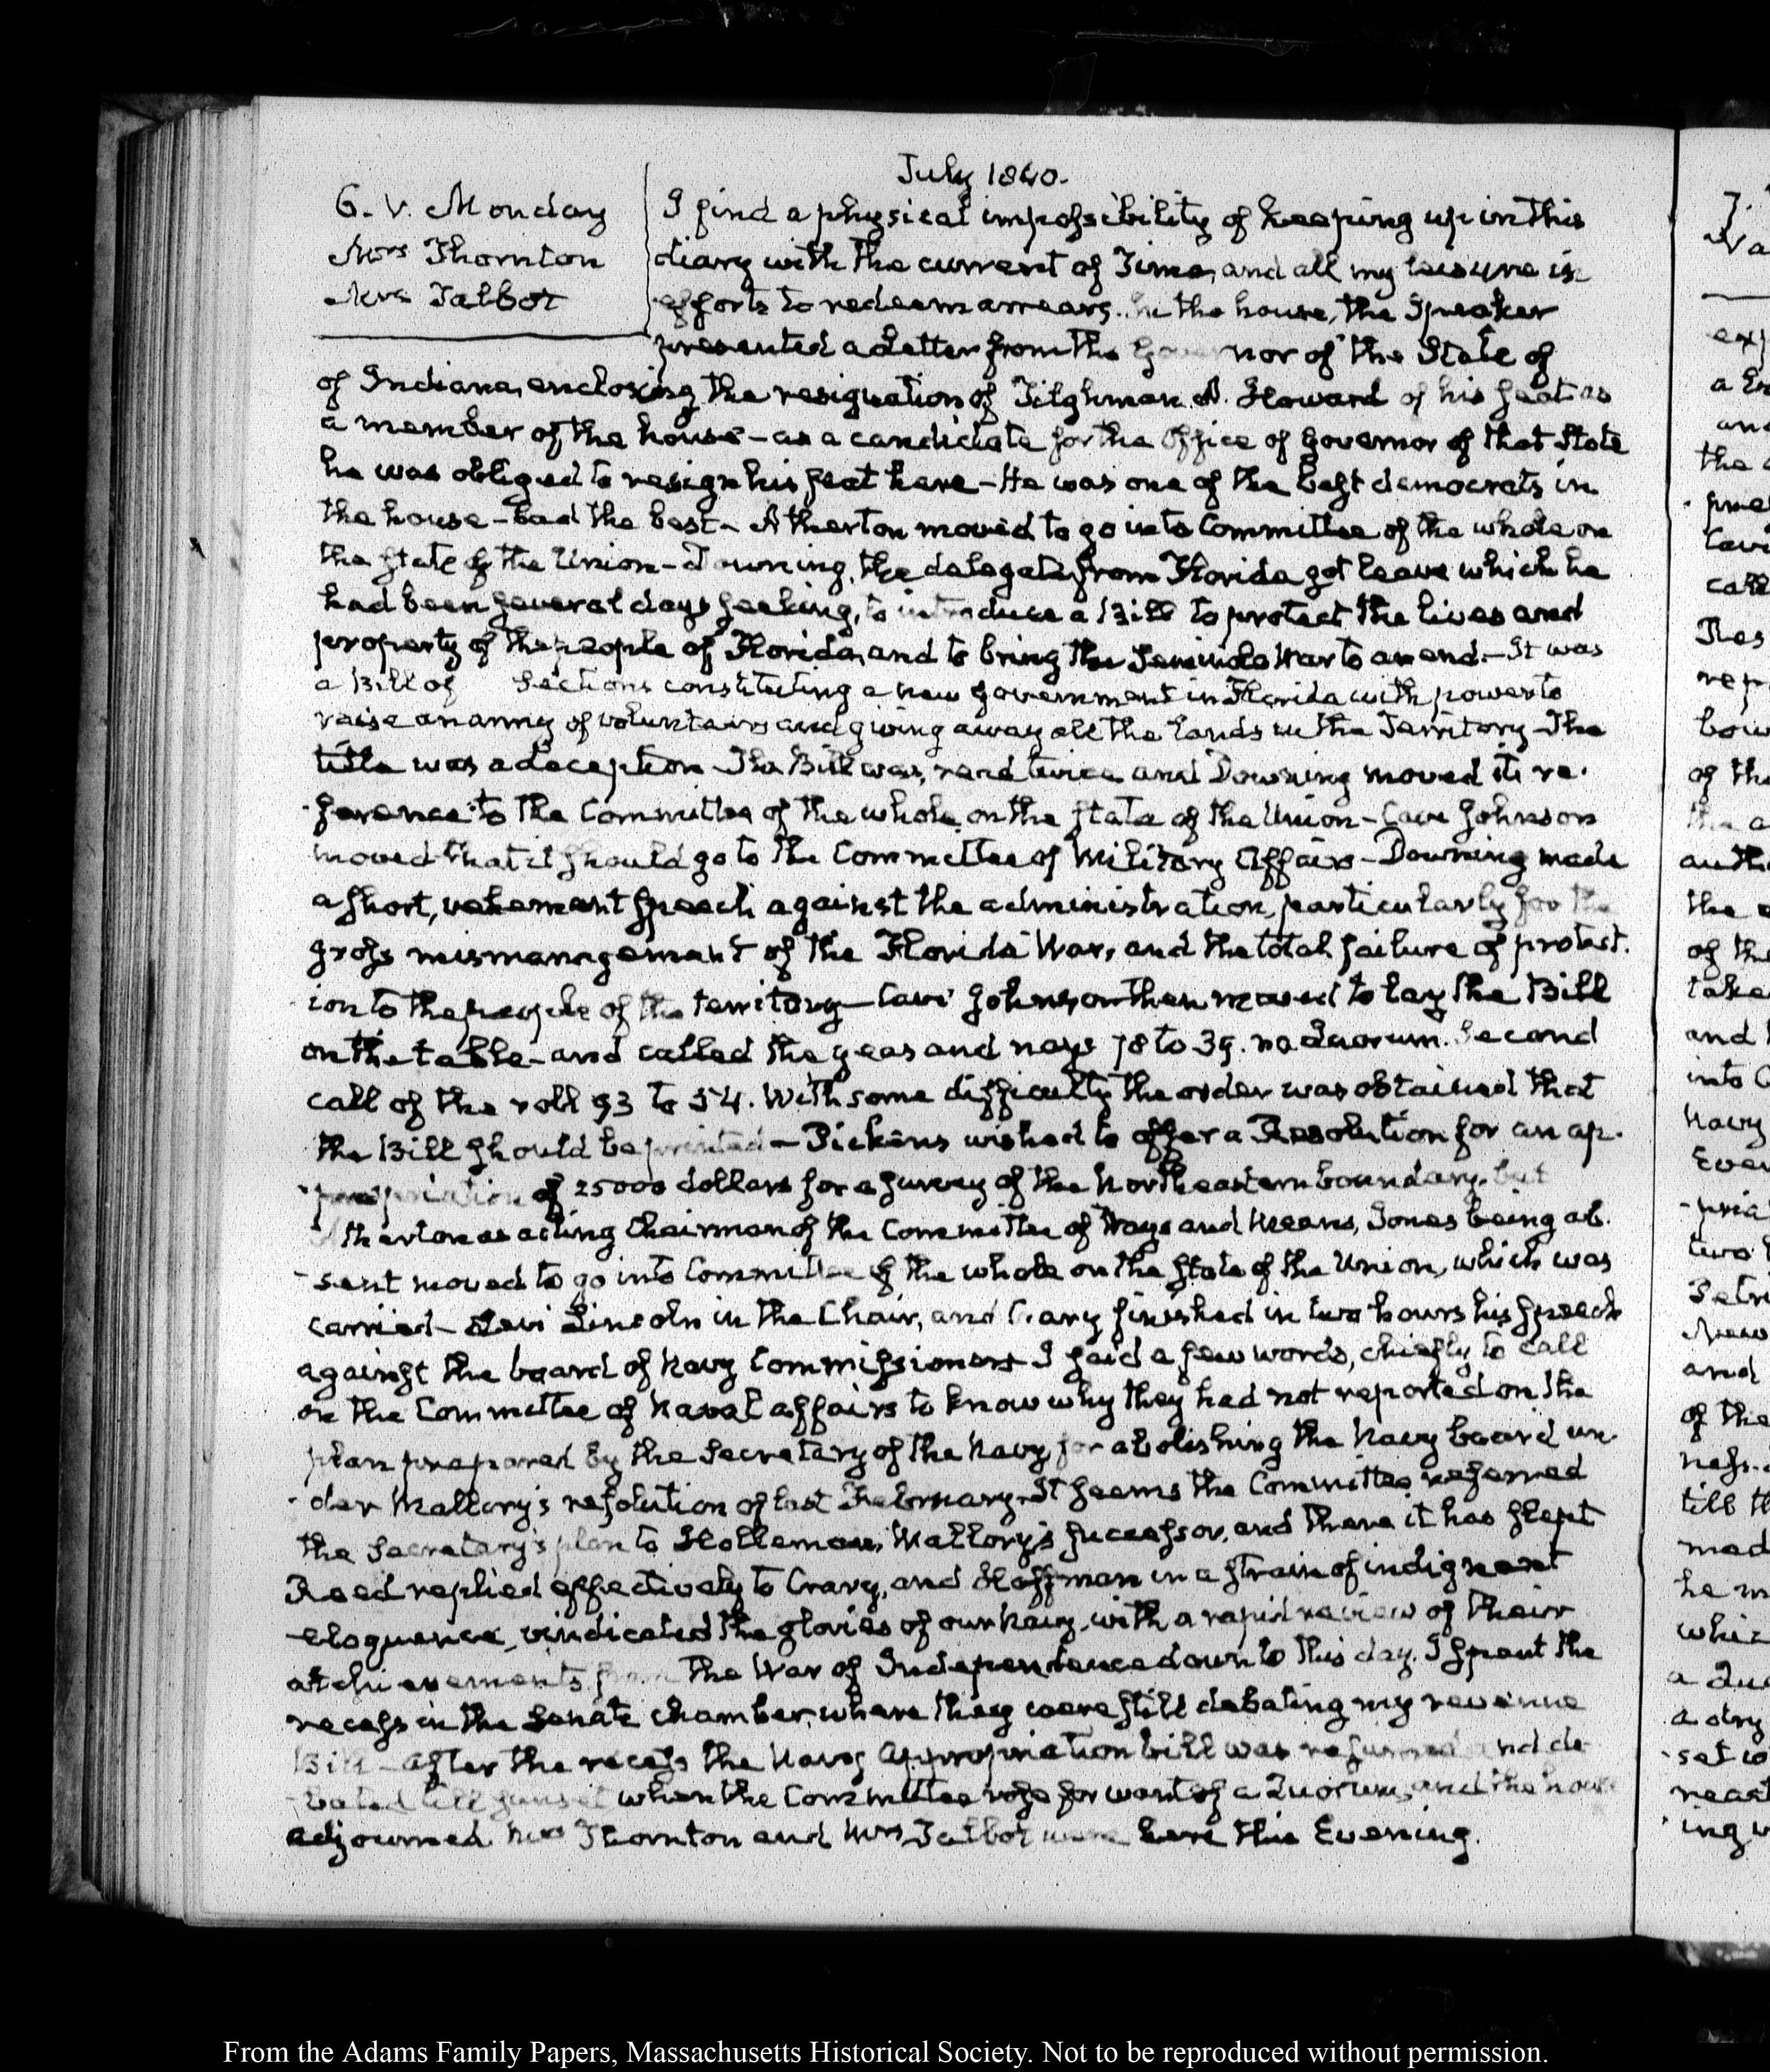 July 1840.
6. V. Monday
Mrs Thornton
Mrs Talbot
I find a physical impossibility of keeping up in this
diary with the current of Time, and all my leisure is
efforts to redeem arrears. In the house, the Speaker
presented a Letter from the Governor of the State of
of Indiana, enclosing the resignation of Tilghman A. Howard of his seat as
a member of the house - as a candidate for the Office of Governor of that State
he was obliged to resign his seat here - He was one of the best democrats in
the house - bad the best - Atherton moved to go into Committee of the whole on
the state of the Union - Downing, the delegate from Florida got leave which he
had been several days seeking, to introduce a Bill to protect the lives and
property of the people of Florida, and to bring the Seminole War to an end. - It was
a Bill of Sections constituting a new government in Florida with power to
raise an army of volunteers and giving away all the lands in the Territory - The
title was a deception - The Bill was, read twice and Downing moved its re-
-ference to the Committee of the whole, on the state of the Union - Cave Johnson
moved that it should go to the Committee of Military Affairs - Downing made
a short, vehement speech against the administration, particularly for the
gross mismanagement of the Florida War, and the total failure of protect-
ion to the people of the territory - Cave Johnson then moved to lay the Bill
on the table - and called the yeas and nays 78 to 39. no Quorum. Second
call of the roll 93 to 54. With some difficulty the order was obtained that
the Bill should be printed - Pickens wished to offer a Resolution for an ap-
-propriation of 25000 dollars for a survey of the Northeastern boundary, but
Atherton as acting Chairman of the Committee of Ways and Means, Jones being ab-
-sent moved to go into Committee of the whole on the state of the Union, which was
carried - Levi Lincoln in the Chair, and Crary finished in two hours his speech
against the board of Navy Commissioners - I said a few words, chiefly to call
on the Committee of Naval affairs to know why they had not reported on the
plan prepared by the Secretary of the Navy for abolishing the Navy board un-
-der Mallory's resolution of last February. It seems the Committee referred
the Secretary's plan to Holleman, Mallory's successor, and there it has slept
Reed replied effectively to Crary, and Hoffman in a strain of indignant
eloquence, vindicated the glories of our Navy, with a rapid review of their
atchievements from the War of Independence down to this day. I spent the
recess in the Senate chamber, where they were still debating my revenue
Bill - after the recess the Navy Appropriation bill was resumed and de-
-bated till sunset when the Committee rose for want of a Quorum, and the house
adjourned Mrs Thornton and Mrs Talbot were here this Evening.
From the Adams Family Papers, Massachusetts Historical Society. Not to be reproduced without permission.